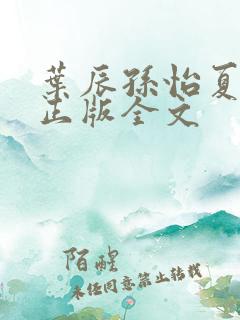 叶辰孙怡夏
正版全文
陌醒
未经同意禁止转载